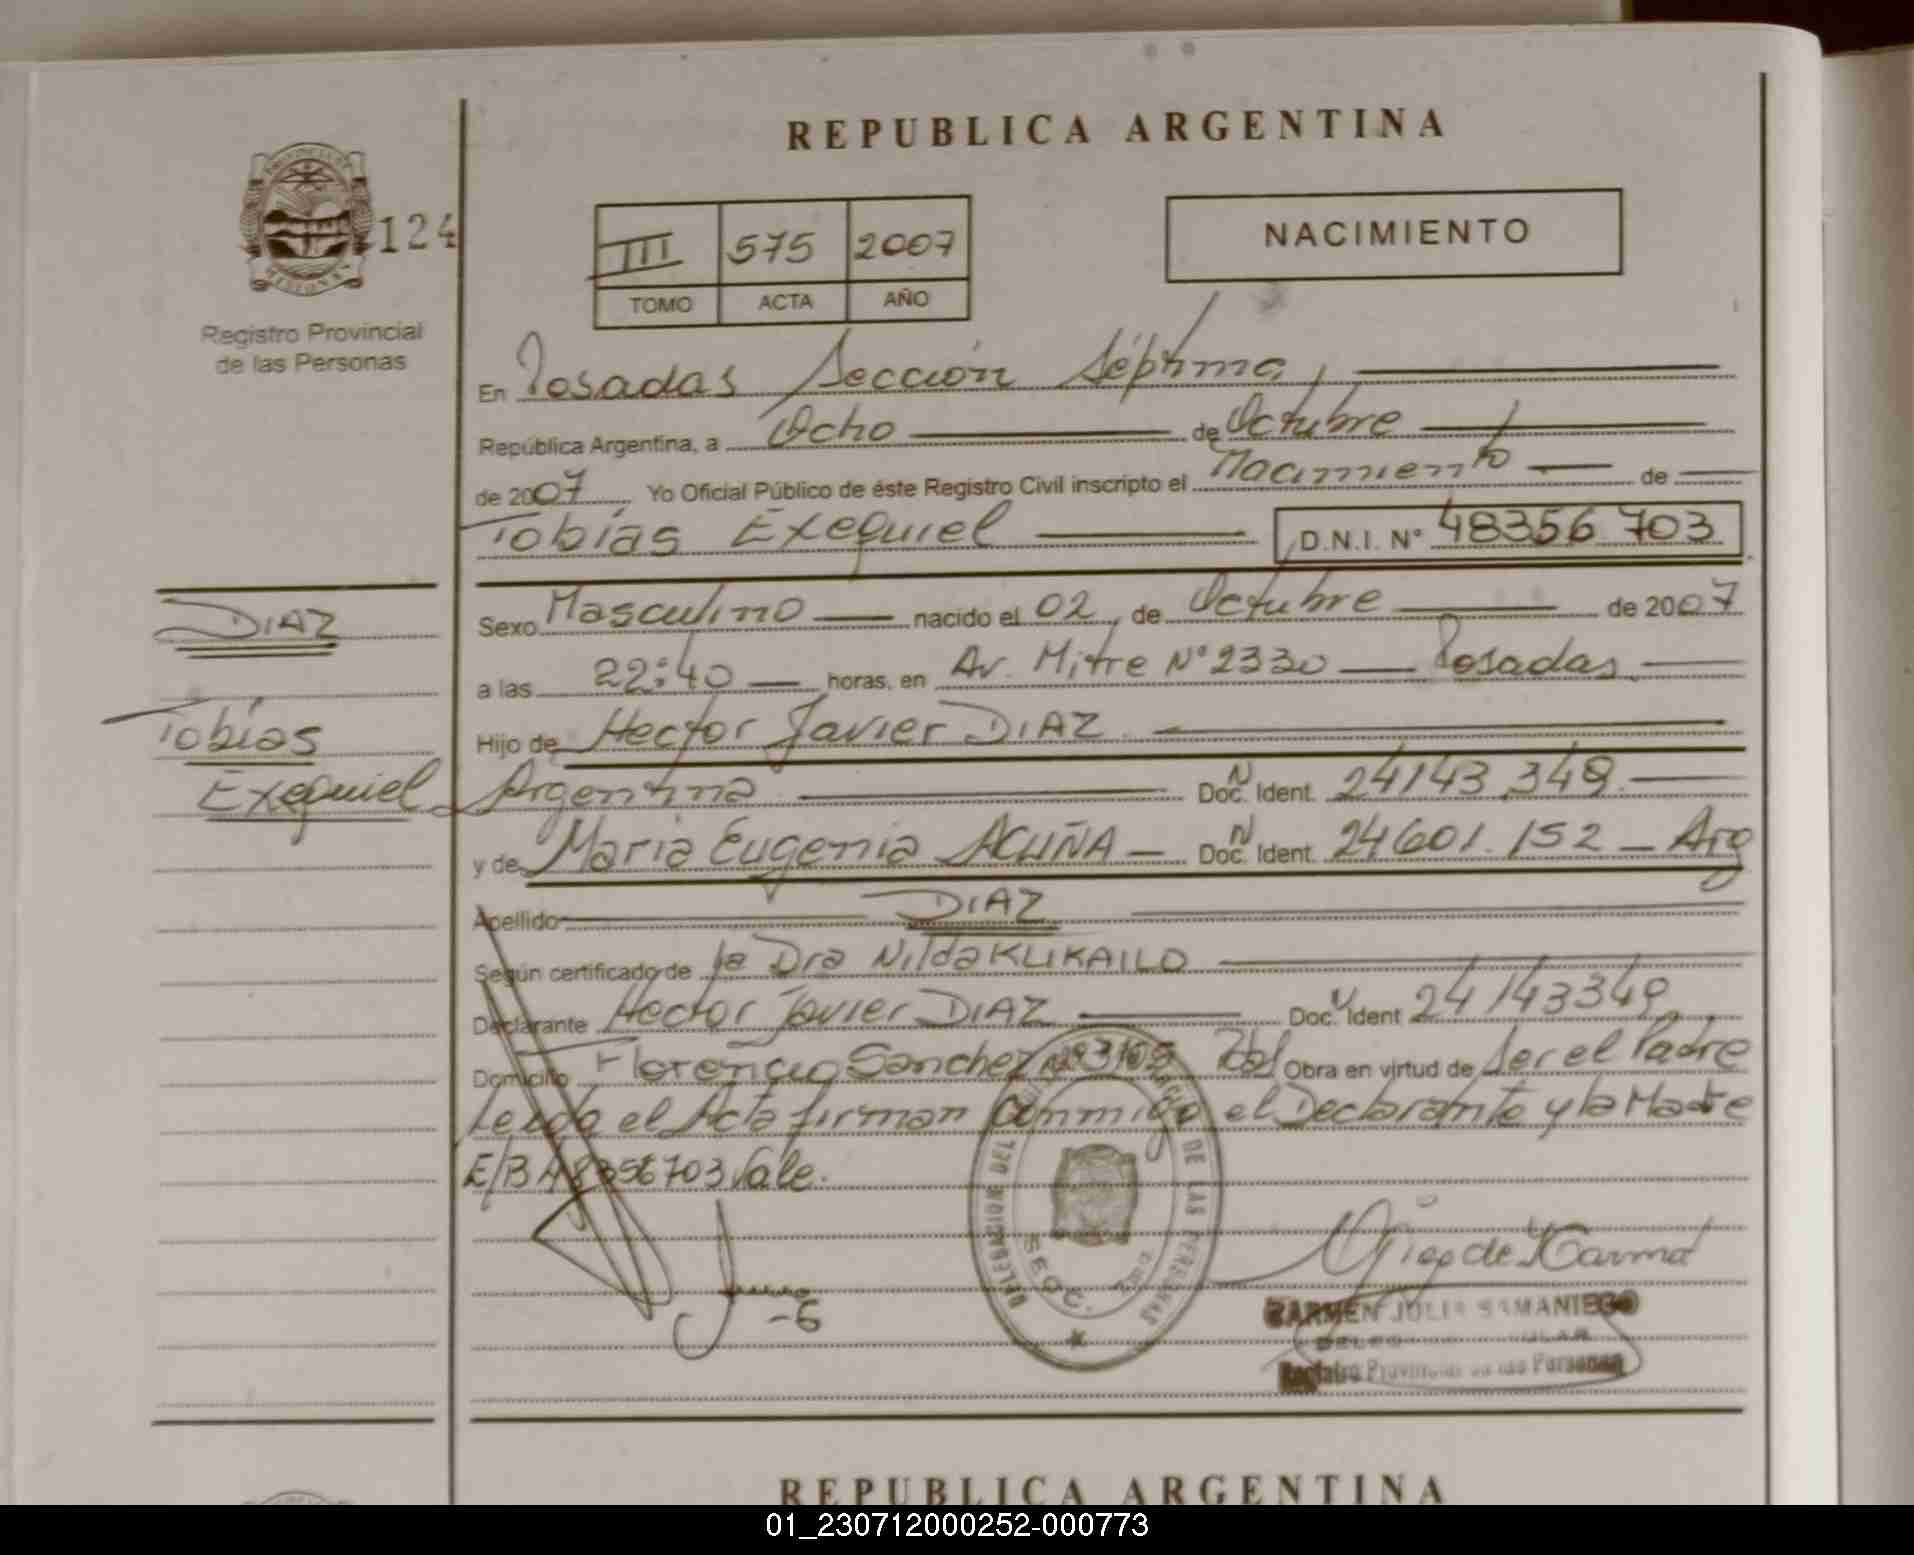 REPUBLICA ARGENTINA
PROVINCIA DE
MISIONES
124
Registro Provincial
de las Personas
III 575 2007
TOMO ACTA AÑO
NACIMIENTO
En Posadas Sección Séptima,
República Argentina, a Ocho de Octubre
de 2007 Yo Oficial Público de éste Registro Civil inscripto el Nacimiento de
Tobías Exequiel D.N.I. N° 48356 703
DIAZ
Tobías
Exequiel
Sexo Masculino nacido el 02 de Octubre de 2007
a las 22:40 horas, en Av. Mitre N° 2330 Posadas.
Hijo de Hector Javier DIAZ
Argentina Doc. N Ident. 24143.349.
y de Maria Eugenia ACUÑA Doc. N Ident. 24601.152 Arg
Apellido DIAZ
Según certificado de la Dra Nilda KUKAILO
Declarante Hector Javier DIAZ Doc. N Ident 24143349
Domicilio Florencio Sanchez N° 3165 Obra en virtud de Ser el Padre
Leida el Acta firman Conmigo el Declarante y la Madre
E/B 48356703 Vale.
DELEGACION DEL DE LAS PERSONAS
SECC.
CARMEN JULIA SAMANIEGO
Registro Provincial de las Personas
REPUBLICA ARGENTINA
01_230712000252-000773